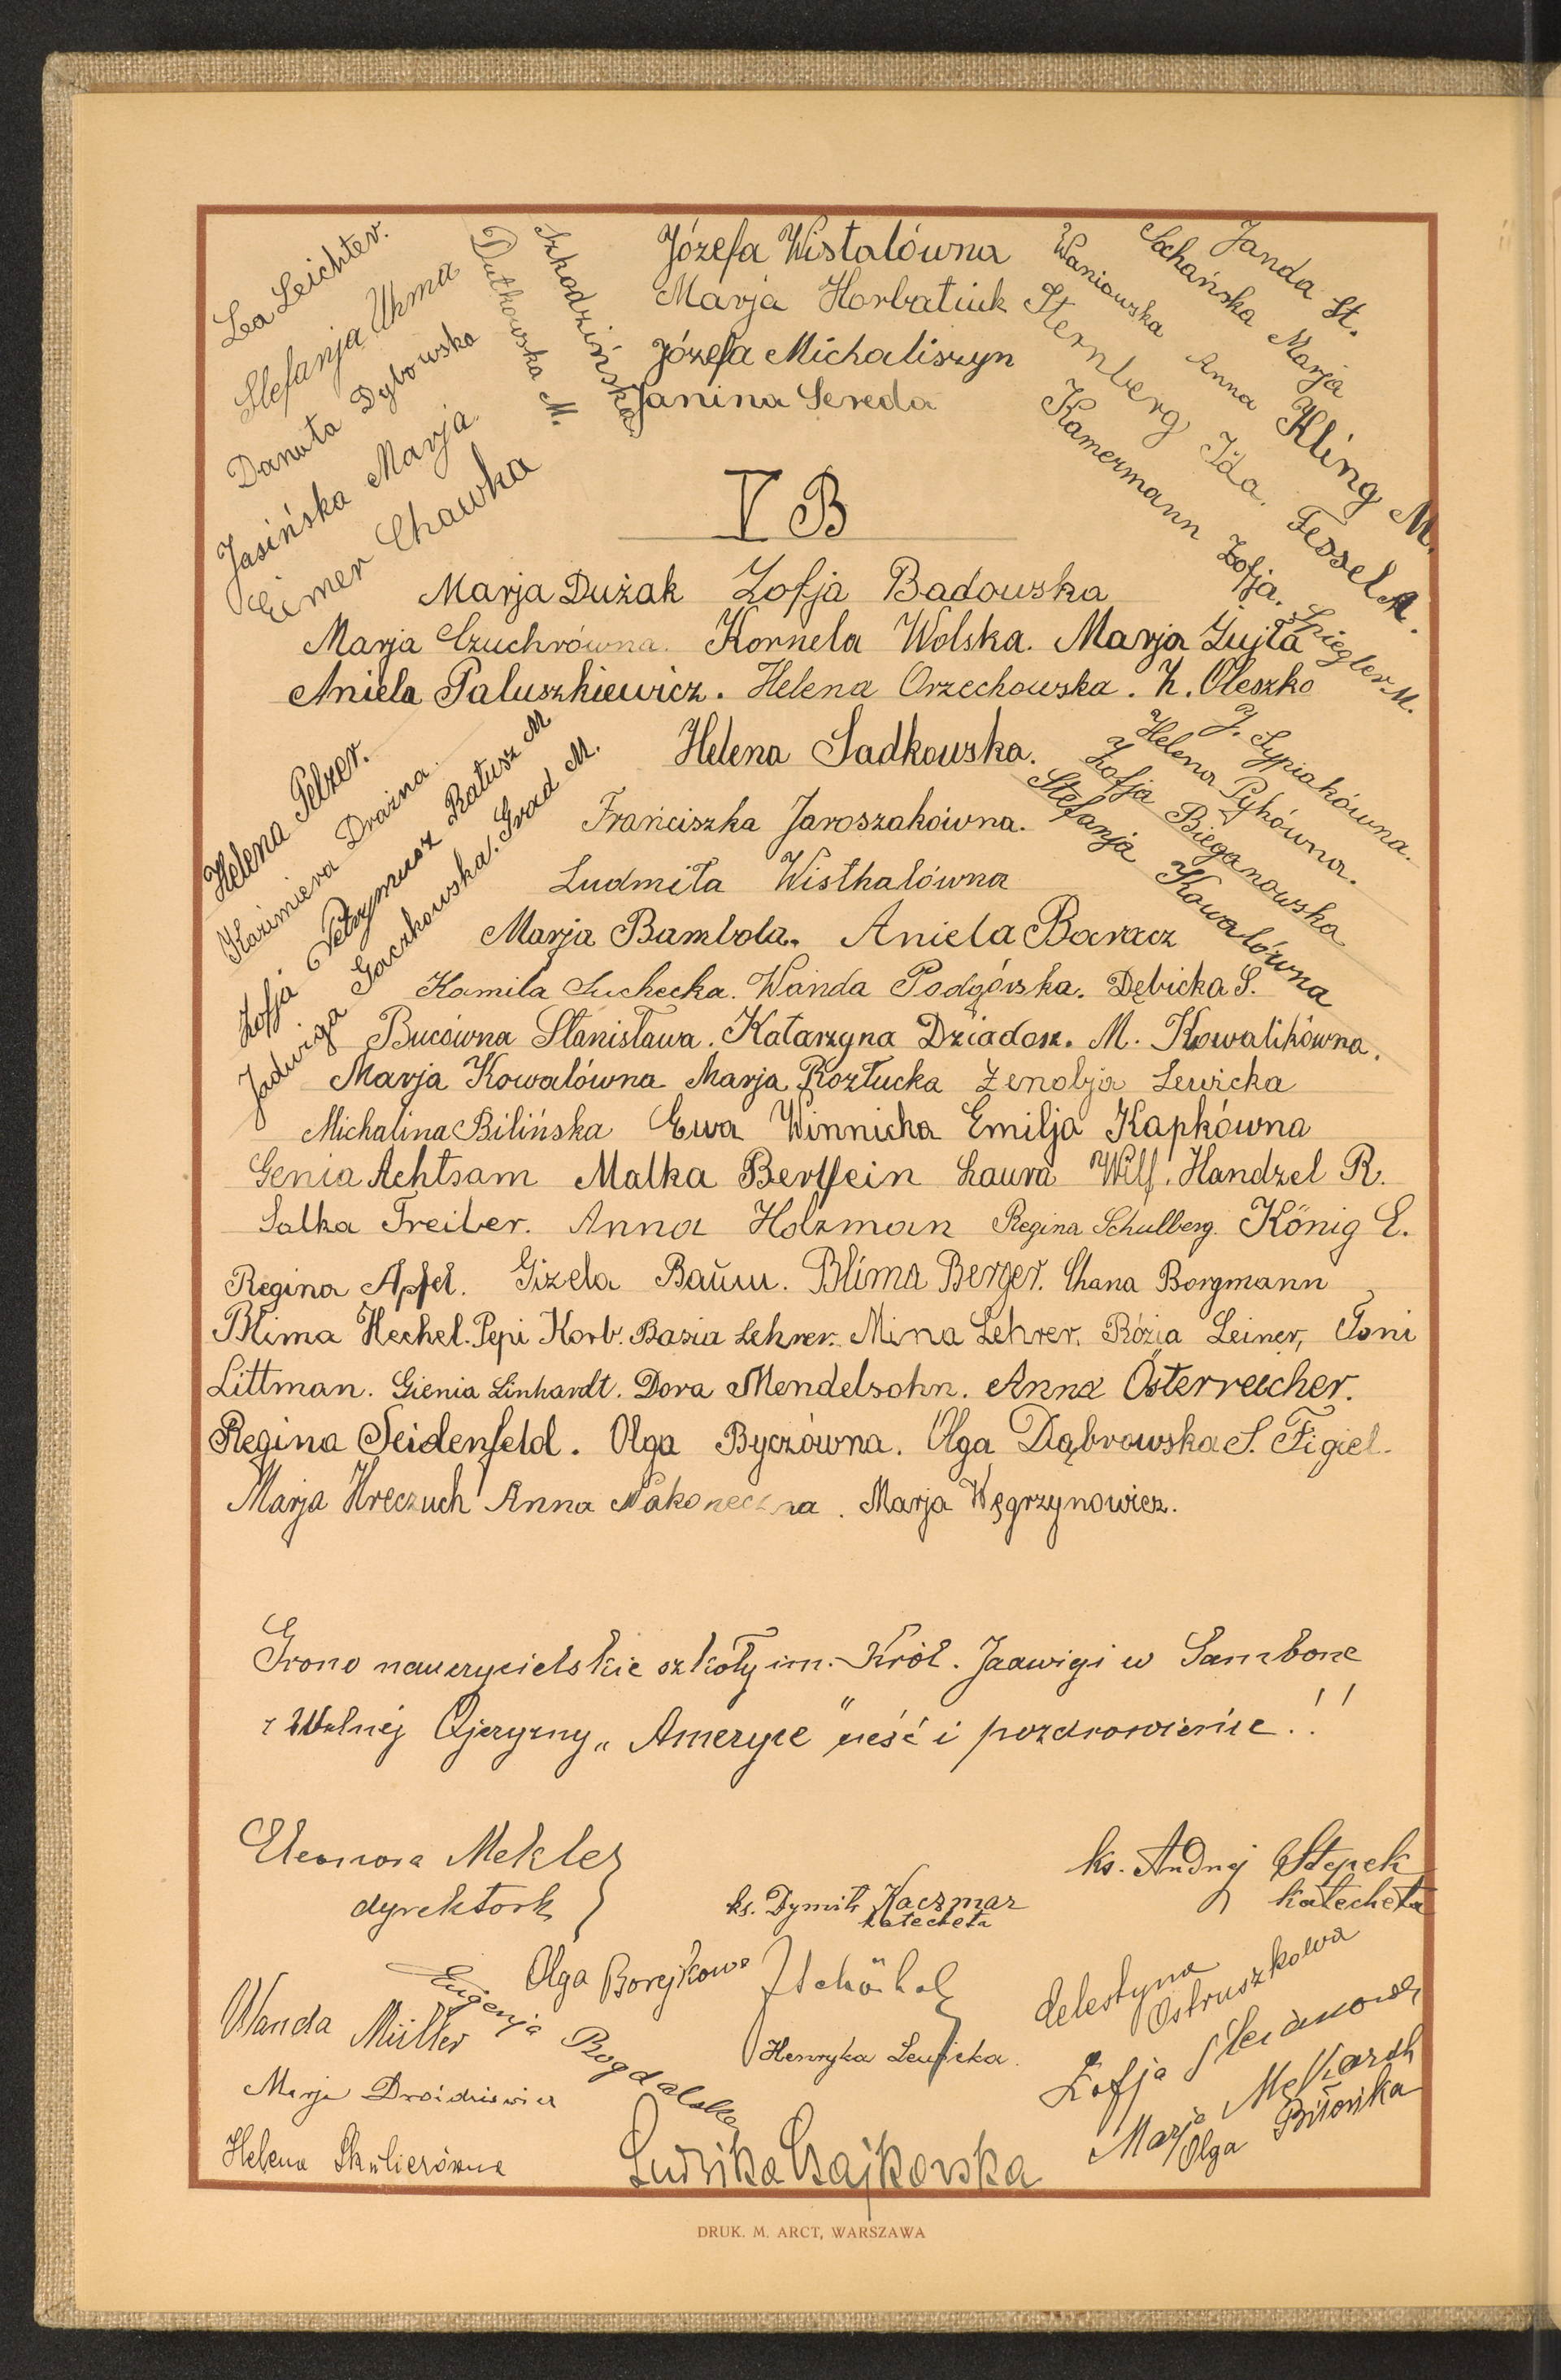 Lea Leichter.
Stefanja Uhma
Danuta Dybowska
Jasińska Marja
Eimer Chawka
Dutkowska M.
Szkodzińska
Józefa Wistalówna
Marja Horbatiuk
Józefa Michaliszyn
Janina Sereda
Janda St.
Sochańska Marja
Waniowska Anna Kling M.
Sternberg Ida. Fessel A.
Kamermann Zofja. Spiegler M.
V B
Marja Dużak Zofja Badowska
Marja Czuchrówna. Kornela Wolska. Marja Żujła
Aniela Paluszkiewicz. Helena Orzechowska. K. Oleszko
Helena Pelzer.
Kazimiera Draźna.
Zofja Petrymusz Ratusz M
Jadwiga Gaczkowska. Grad M.
Helena Sadkowska.
Franciszka Jaroszakówna.
Ludmiła Wisthalówna
J. Sypiakówna.
Helena Pykówna.
Zofja Bieganowska
Stefanja Kowalówna
Marja Bambola. Aniela Baracz
Kamila Suchecka. Wanda Podgórska. Dębicka S.
Bucówna Stanisława. Katarzyna Dziadosz. M. Kowalikówna.
Marja Kowalówna Marja Rozłucka Zenobja Lewicka
Michalina Bilińska Ewa Winnicka Emilja Kapkówna
Genia Achtsam Malka Bertfein Laura Wilf. Handzel R.
Salka Treiber. Anna Holzman Regina Schulberg. König E.
Regina Apfel. Gizela Baum. Blima Berger. Chana Borgmann
Blima Hechel. Pepi Korb. Basia Lehrer. Mina Lehrer. Rózia Leiner, Toni
Littman. Gienia Linhardt. Dora Mendelsohn. Anna Österreicher.
Regina Seidenfeld. Olga Byczówna. Olga Dąbrowska S. Figiel.
Marja Hreczuch Anna Nakoneczna. Marja Węgrzynowicz.
Grono nauczycielskie szkoły im. Król. Jadwigi w Samborze
z Wolnej Ojczyzny „Ameryce" cześć i pozdrowienie!!
Eleonora Mekler
dyrektork
ks. Dymitr Kaczmar
katecheta
ks. Andrzej Stępek
katecheta
Olga Borejkowa
Celestyna
Ostruszkowa
Wanda Müller
Eugenja Rogdalska
Henryka Lewicka.
Zofja
Marja
Olga
Marja
Helena
Ludwika Czajkowska
DRUK. M. ARCT, WARSZAWA